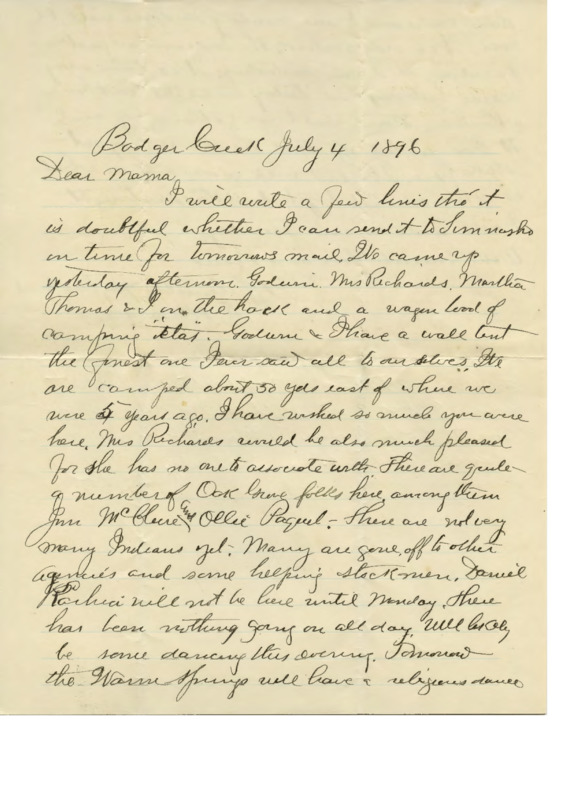 Badger Creek July 4 1896
Dear Mama
I will write a few lines tho' it
is doubtful whether I can send it to Simnasho
in time for tomorrows mail. We came up
yesterday afternoon. Godwin. Mrs Richards. Martha
Thomas & I in the hack and a wagon load of
camping "ictas". Godwin & I have a wall tent
the finest one I ever saw all to ourselves. We
are camped about 50 yds east of where we
were years ago. I have wished so much you were
here. Mrs Richards would be also much pleased
for she has no one to associate with. There are quite
a number of Oak Grove folks here, among them
Jim McClure and Ollie Paquet. - There are not very
many Indians yet. Many are gone off to other
agencies and some helping stockmen. Daniel
will not be here until Monday. There
has been nothing going on all day. Will likely
be some dancing this evening. Tomorrow
the Warm Springs will have a religious dance